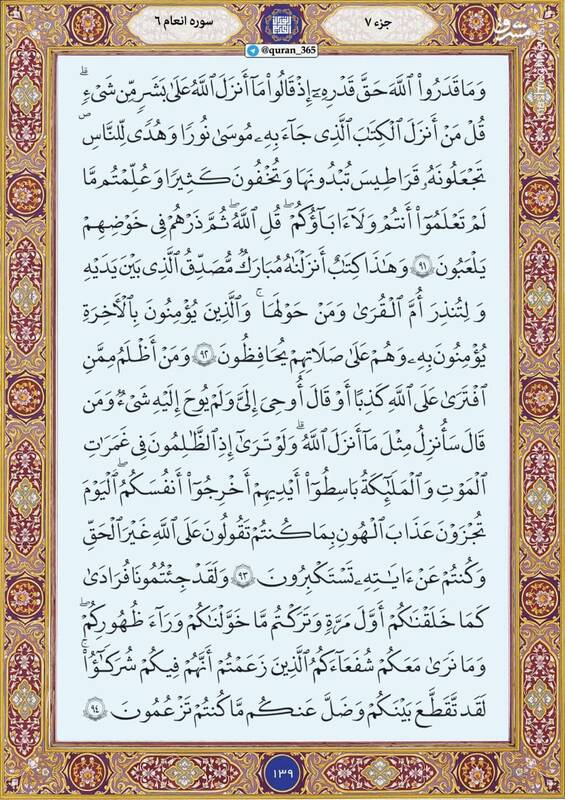 جزء ۷
سوره انعام ۶
مشرق
@quran_365
وَمَا قَدَرُوا۟ ٱللَّهَ حَقَّ قَدْرِهِۦٓ إِذْ قَالُوا۟ مَآ أَنزَلَ ٱللَّهُ عَلَىٰ بَشَرٍ مِّن شَىْءٍ ۗ
قُلْ مَنْ أَنزَلَ ٱلْكِتَٰبَ ٱلَّذِى جَآءَ بِهِۦ مُوسَىٰ نُورًا وَهُدًى لِّلنَّاسِ ۖ
تَجْعَلُونَهُۥ قَرَاطِيسَ تُبْدُونَهَا وَتُخْفُونَ كَثِيرًا ۖ وَعُلِّمْتُم مَّا
لَمْ تَعْلَمُوٓا۟ أَنتُمْ وَلَآ ءَابَآؤُكُمْ ۖ قُلِ ٱللَّهُ ۖ ثُمَّ ذَرْهُمْ فِى خَوْضِهِمْ
يَلْعَبُونَ ۹۱ وَهَٰذَا كِتَٰبٌ أَنزَلْنَٰهُ مُبَارَكٌ مُّصَدِّقُ ٱلَّذِى بَيْنَ يَدَيْهِ
وَلِتُنذِرَ أُمَّ ٱلْقُرَىٰ وَمَنْ حَوْلَهَا ۚ وَٱلَّذِينَ يُؤْمِنُونَ بِٱلْءَاخِرَةِ
يُؤْمِنُونَ بِهِۦ ۖ وَهُمْ عَلَىٰ صَلَاتِهِمْ يُحَافِظُونَ ۹۲ وَمَنْ أَظْلَمُ مِمَّنِ
ٱفْتَرَىٰ عَلَى ٱللَّهِ كَذِبًا أَوْ قَالَ أُوحِىَ إِلَىَّ وَلَمْ يُوحَ إِلَيْهِ شَىْءٌ وَمَن
قَالَ سَأُنزِلُ مِثْلَ مَآ أَنزَلَ ٱللَّهُ ۗ وَلَوْ تَرَىٰٓ إِذِ ٱلظَّٰلِمُونَ فِى غَمَرَٰتِ
ٱلْمَوْتِ وَٱلْمَلَٰٓئِكَةُ بَاسِطُوٓا۟ أَيْدِيهِمْ أَخْرِجُوٓا۟ أَنفُسَكُمُ ۖ ٱلْيَوْمَ
تُجْزَوْنَ عَذَابَ ٱلْهُونِ بِمَا كُنتُمْ تَقُولُونَ عَلَى ٱللَّهِ غَيْرَ ٱلْحَقِّ
وَكُنتُمْ عَنْ ءَايَٰتِهِۦ تَسْتَكْبِرُونَ ۹۳ وَلَقَدْ جِئْتُمُونَا فُرَٰدَىٰ
كَمَا خَلَقْنَٰكُمْ أَوَّلَ مَرَّةٍ وَتَرَكْتُم مَّا خَوَّلْنَٰكُمْ وَرَآءَ ظُهُورِكُمْ ۖ
وَمَا نَرَىٰ مَعَكُمْ شُفَعَآءَكُمُ ٱلَّذِينَ زَعَمْتُمْ أَنَّهُمْ فِيكُمْ شُرَكَٰٓؤُا۟ ۚ
لَقَد تَّقَطَّعَ بَيْنَكُمْ وَضَلَّ عَنكُم مَّا كُنتُمْ تَزْعُمُونَ ۹۴
۱۳۹